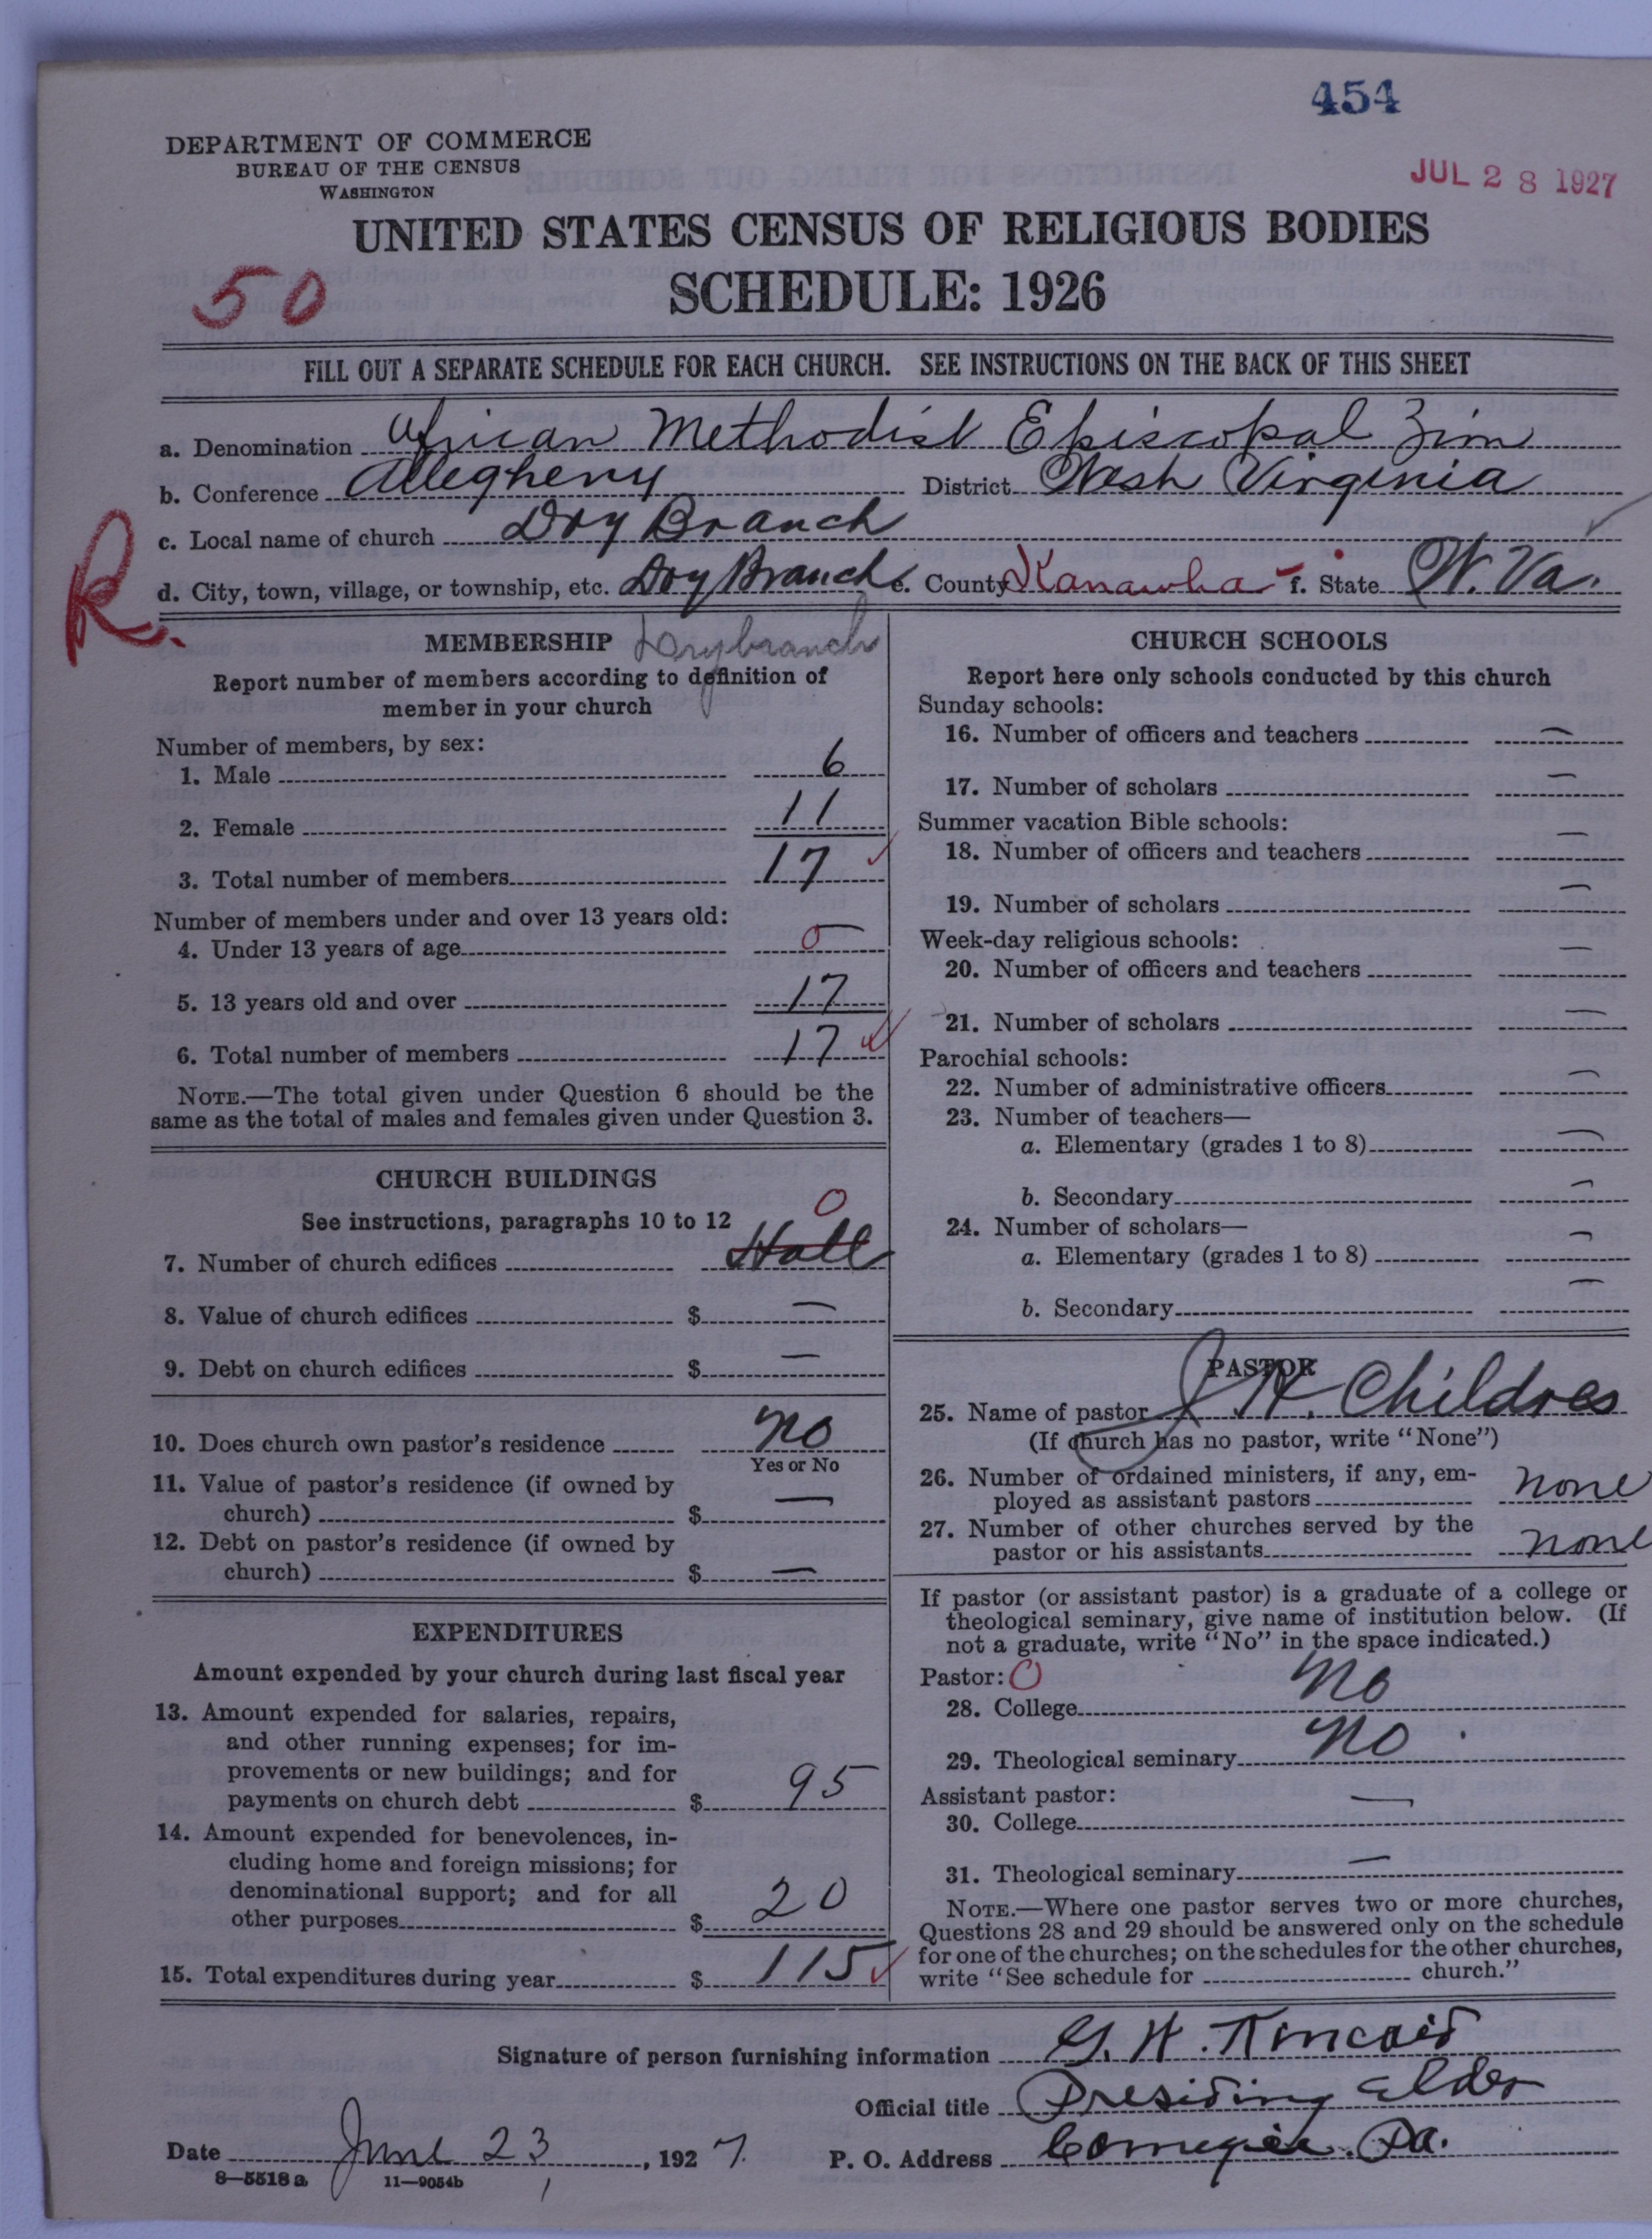 454
DEPARTMENT OF COMMERCE
BUREAU OF THE CENSUS
WASHINGTON
JUL 28 1927
UNITED STATES CENSUS OF RELIGIOUS BODIES
SCHEDULE: 1926
50
FILL OUT A SEPARATE SCHEDULE FOR EACH CHURCH. SEE INSTRUCTIONS ON THE BACK OF THIS SHEET
a. Denomination African Methodist Episcopal Zion
b. Conference Allegheny District West Virginia
c. Local name of church Dry Branch
R.
d. City, town, village, or township, etc. Dry Branch e. County Kanawha f. State W. Va.
MEMBERSHIP Drybranch
Report number of members according to definition of
member in your church
Number of members, by sex:
1. Male 6
2. Female 11
3. Total number of members 17
Number of members under and over 13 years old:
4. Under 13 years of age 0
5. 13 years old and over 17
6. Total number of members 17
NOTE.—The total given under Question 6 should be the
same as the total of males and females given under Question 3.
CHURCH BUILDINGS
See instructions, paragraphs 10 to 12
0
7. Number of church edifices Hall
8. Value of church edifices $ —
9. Debt on church edifices $ —
10. Does church own pastor's residence No
Yes or No
11. Value of pastor's residence (if owned by
church) $ —
12. Debt on pastor's residence (if owned by
church) $ —
EXPENDITURES
Amount expended by your church during last fiscal year
13. Amount expended for salaries, repairs,
and other running expenses; for im-
provements or new buildings; and for
payments on church debt $ 95
14. Amount expended for benevolences, in-
cluding home and foreign missions; for
denominational support; and for all
other purposes $ 20
15. Total expenditures during year $ 115
CHURCH SCHOOLS
Report here only schools conducted by this church
Sunday schools:
16. Number of officers and teachers —
17. Number of scholars —
Summer vacation Bible schools:
18. Number of officers and teachers —
19. Number of scholars —
Week-day religious schools:
20. Number of officers and teachers —
21. Number of scholars —
Parochial schools:
22. Number of administrative officers —
23. Number of teachers—
a. Elementary (grades 1 to 8) —
b. Secondary —
24. Number of scholars—
a. Elementary (grades 1 to 8) —
b. Secondary —
PASTOR
25. Name of pastor J. H. Childres
(If church has no pastor, write "None")
26. Number of ordained ministers, if any, em-
ployed as assistant pastors none
27. Number of other churches served by the
pastor or his assistants none
If pastor (or assistant pastor) is a graduate of a college or
theological seminary, give name of institution below. (If
not a graduate, write "No" in the space indicated.)
Pastor: 0
28. College No
29. Theological seminary No.
Assistant pastor:
30. College —
31. Theological seminary —
NOTE.—Where one pastor serves two or more churches,
Questions 28 and 29 should be answered only on the schedule
for one of the churches; on the schedules for the other churches,
write "See schedule for church."
Signature of person furnishing information G. H. Kincaid
Official title Presiding Elder
Date June 23, 1927. P. O. Address Carnegie, Pa.
8—5518a 11—9054b